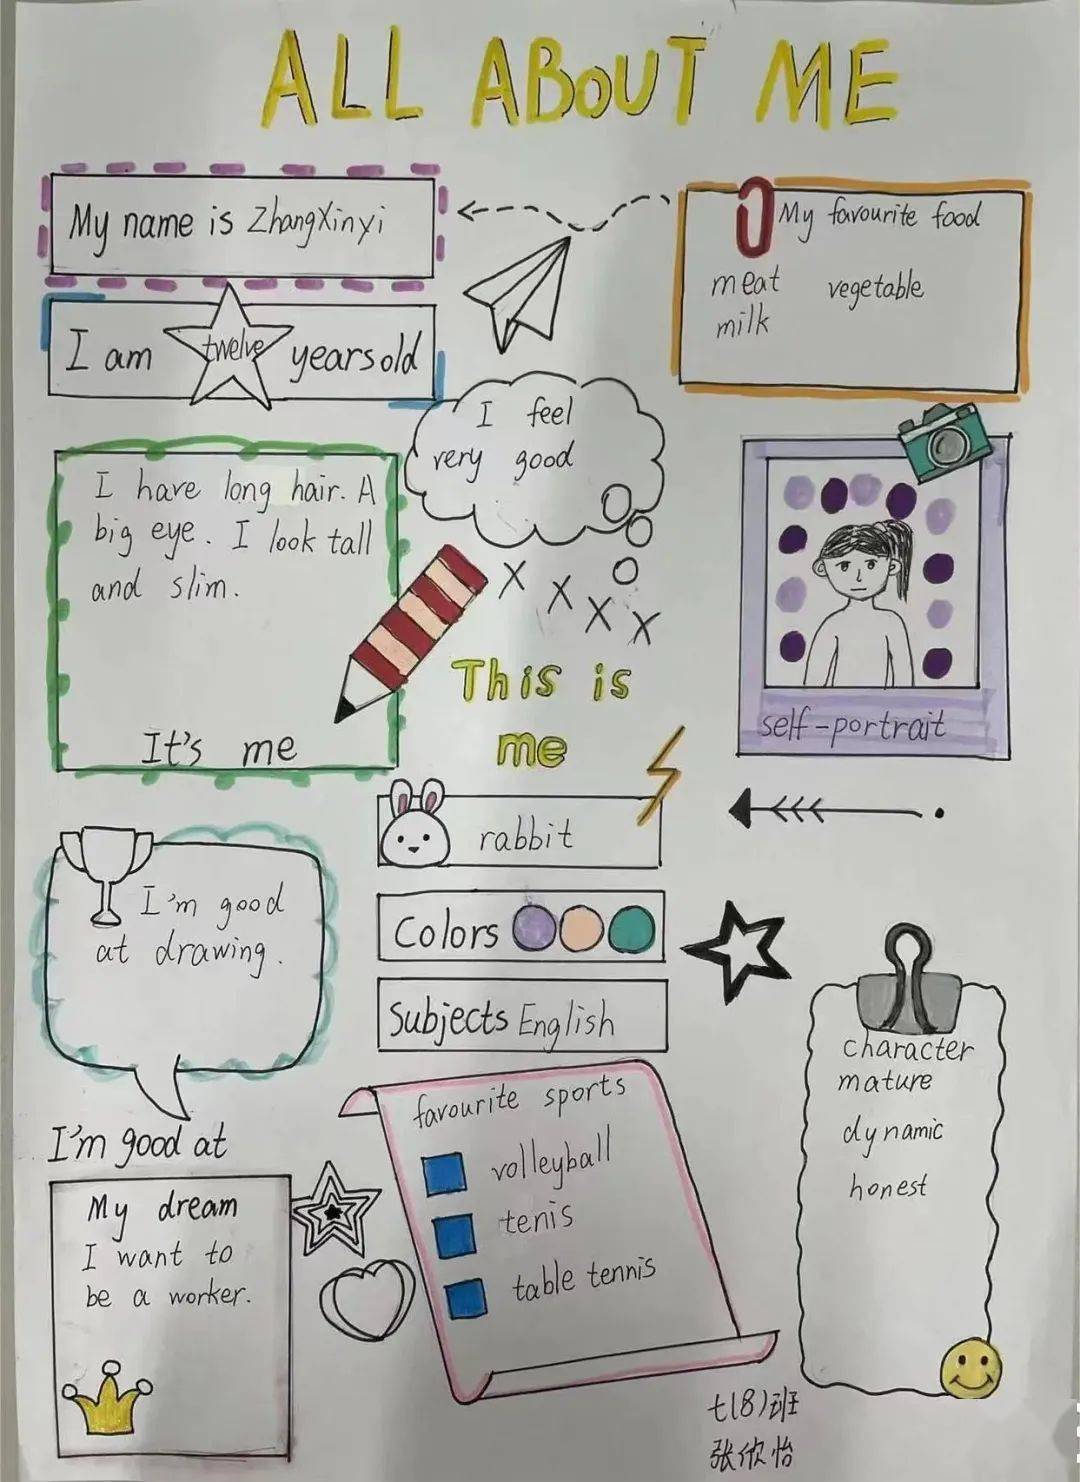 ALL ABOUT ME
My name is ZhangXinyi
I am twelve years old
My favourite food
meat vegetable
milk
I feel
very good
I have long hair. A
big eye. I look tall
and slim.
It's me
This is
me
self-portrait
rabbit
Colors
Subjects English
I'm good
at drawing.
I'm good at
My dream
I want to
be a worker.
favourite sports
volleyball
tenis
table tennis
character
mature
dynamic
honest
七(8)班
张欣怡